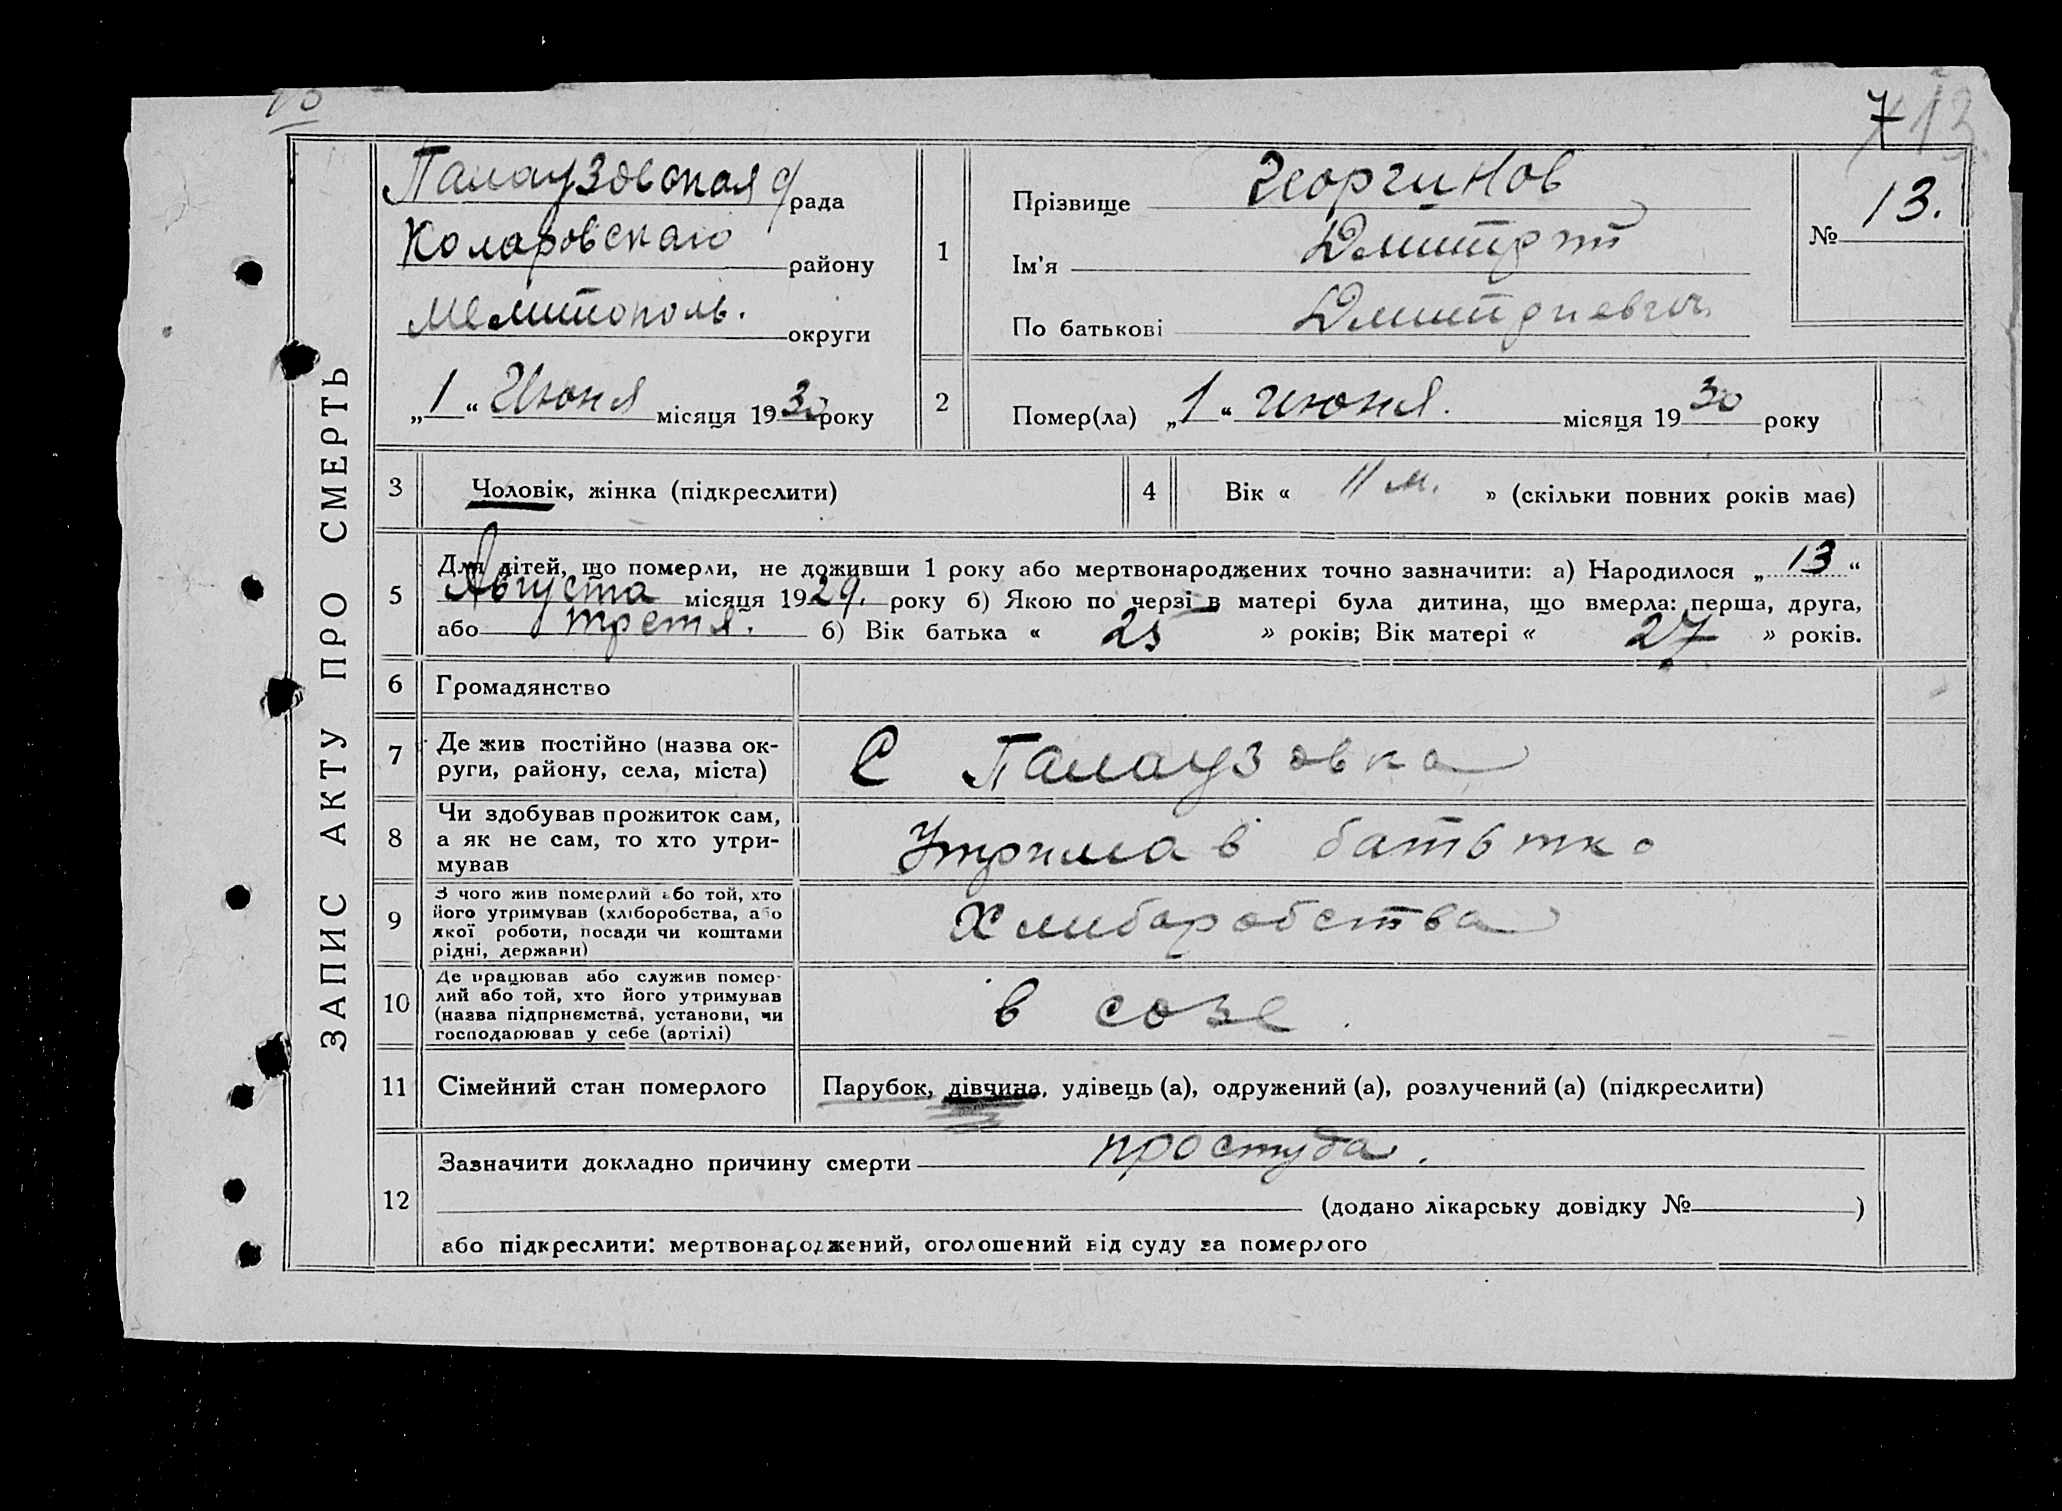 713
ЗАПИС АКТУ ПРО СМЕРТЬ
Палаузовская рада
Коларовскаго району
Мелитополь. округи
„1“ Июня місяця 1930 року
1
Прізвище Георгинов
Ім'я Дмитрий
По батькові Дмитриевич
№ 13.
2
Помер(ла) „1“ июня. місяця 1930 року
3
Чоловік, жінка (підкреслити)
4
Вік « 11 м. » (скільки повних років має)
5
Для дітей, що померли, не доживши 1 року або мертвонароджених точно зазначити: а) Народилося „13“
Августа місяця 1929. року б) Якою по черзі в матері була дитина, що вмерла: перша, друга,
або третя. б) Вік батька « 25 » років; Вік матері « 27 » років.
6
Громадянство
7
Де жив постійно (назва ок-
руги, району, села, міста)
С Палаузовка
8
Чи здобував прожиток сам,
а як не сам, то хто утри-
мував
Утримав батько
9
З чого жив померлий або той, хто
його утримував (хліборобства, або
якої роботи, посади чи коштами
рідні, держави)
Хлиборобства
10
Де працював або служив помер-
лий або той, хто його утримував
(назва підприємства, установи, чи
господарював у себе (артілі)
в созе.
11
Сімейний стан померлого
Парубок, дівчина, удівець (а), одружений (а), розлучений (а) (підкреслити)
12
Зазначити докладно причину смерти простуда.
(додано лікарську довідку № )
або підкреслити: мертвонароджений, оголошений від суду за померлого